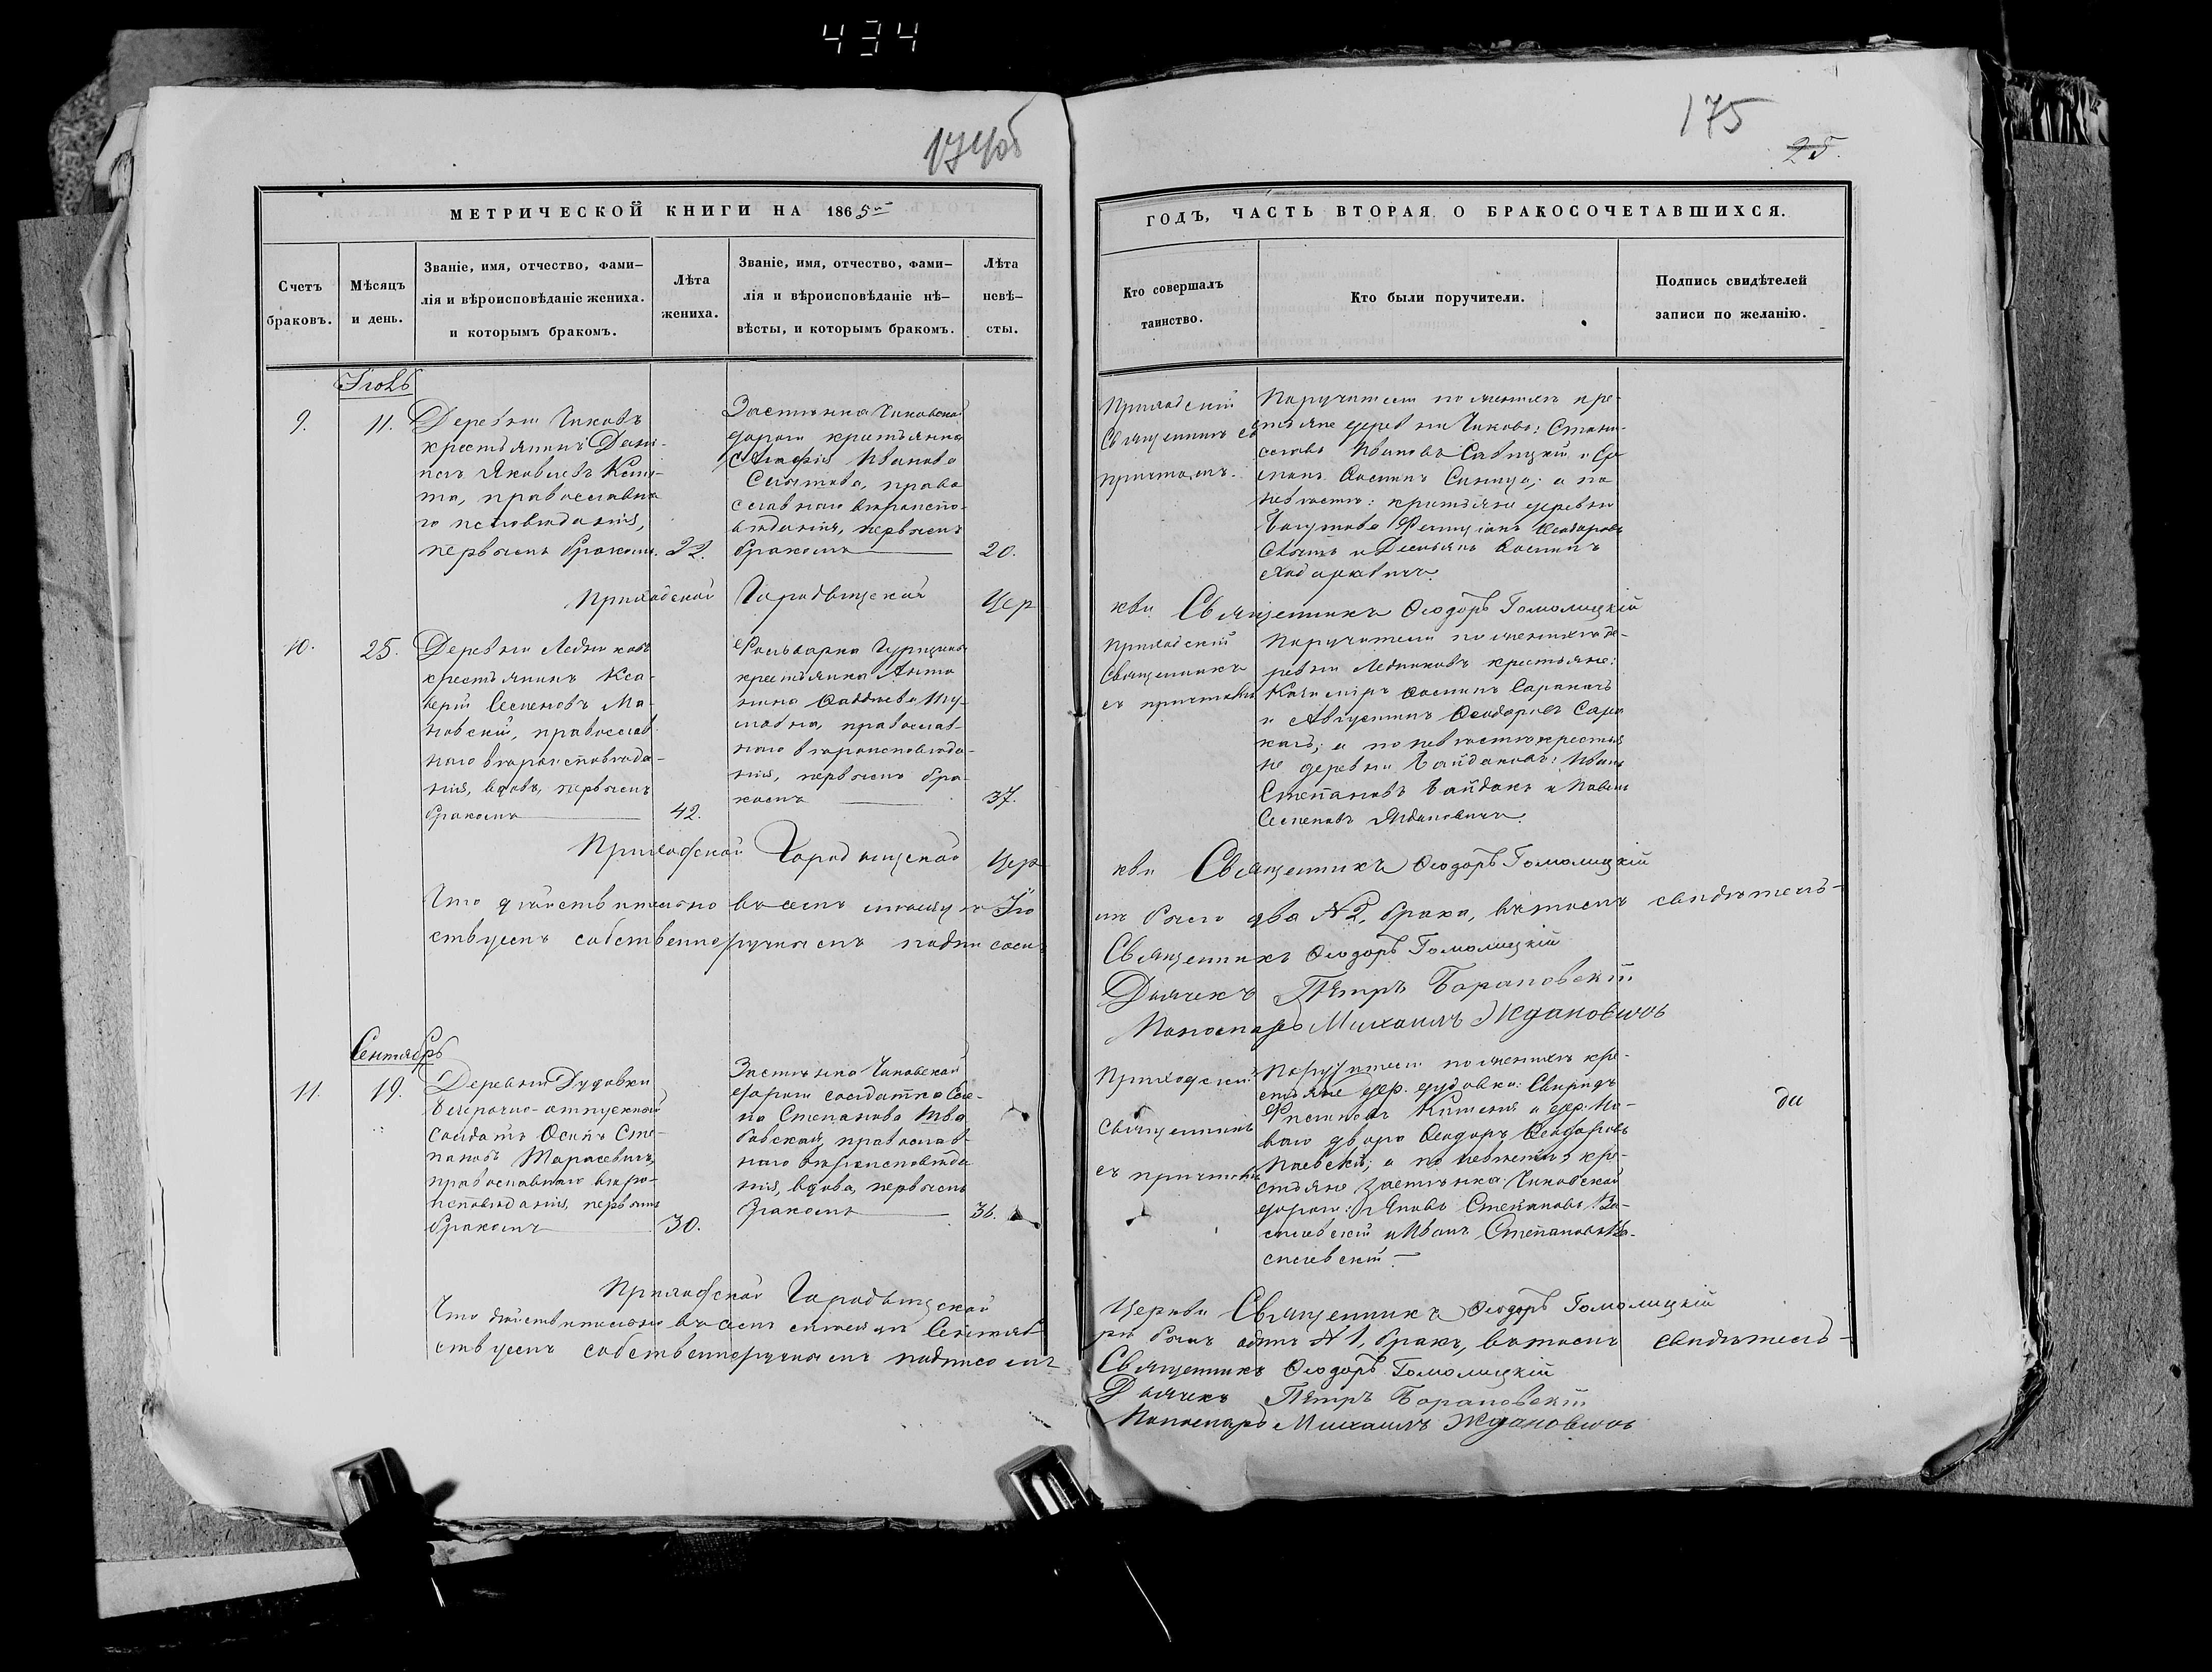 434
174об
175
25.
МЕТРИЧЕСКОЙ КНИГИ НА 1865
ГОДЪ, ЧАСТЬ ВТОРАЯ О БРАКОСОЧЕТАВШИХСЯ.
Счетъ
браковъ.
Мѣсяцъ
и день.
Званіе, имя, отчество, фами-
лія и вѣроисповѣданіе жениха.
и которымъ бракомъ.
Лѣта
жениха.
Званіе, имя, отчество, фами-
лія и вѣроисповѣданіе нѣ-
вѣсты, и которымъ бракомъ.
Лѣта
невѣ-
сты.
Кто совершалъ
таинство.
Кто были поручители.
Подпись свидѣтелей
записи по желанію.
9.
11.
Деревни Чиковъ
крестьянинъ Дани-
лъ Яковлевъ
православна
го исповѣданія,
первымъ бракомъ.
22.
Застѣнка Чиковской
дороги крестьянка
Ивановa
право
славнаго вѣроиспо-
вѣданія, первымъ
бракомъ
20.
Приходскій
Священникъ съ
причтомъ.
Поручители по женихѣ кре-
стьяне деревни Чиково: Стани-
славъ Ивановъ Савицкій и Сте
панъ Осиповъ Синица; а по
невѣстѣ: крестьяне деревни
Феодоровъ
и Демьянъ Осиповъ
Приходской
Городыщской
Цер
кви Священникъ Ѳеодоръ Гомолицкій
10.
25.
Деревни Ледниковъ
крестьянинъ Кса-
верій Семеновъ Ма-
новскій, православ
наго вѣроисповѣда-
нія, вдовъ, первымъ
бракомъ
42.
Фольварка
крестьянка Анто
нина Фаддѣева
православ-
наго вѣроисповѣда-
нія, первымъ бра-
комъ
37.
Приходскій
Священникъ
съ причтомъ
Поручители по женихѣ де-
ревни Ледниковъ крестьяне:
Казиміръ Осиповъ Саракачъ
и Августинъ Ѳеодоровъ Сара
качъ; а по невѣстѣ крестья
не деревни Гайдаковъ: Иванъ
Степановъ Гайдакъ и Павелъ
Семеновъ Ждановичъ.
Приходской Городыщской Цер
кви Священникъ Ѳеодоръ Гомолицкій
Что дѣйствительно въ семъ мѣсяцѣ Ію
лѣ было два № 2, брака, въ томъ свидѣтель-
ствуемъ собственноручнымъ подписомъ
Священникъ Ѳеодоръ Гомолицкій
Дьячекъ Пётръ Барановскій
Пономарь Михаилъ Ждановичъ
Сентябрь
11.
19.
Деревни Дудовки
безсрочно-отпускной
солдатъ Осипъ Сте-
пановъ Тарасевичъ,
православнаго вѣро-
исповѣданія, первымъ
бракомъ
30.
Застѣнка Чиковской
дороги солдатка
Степанова
православ-
наго вѣроисповѣда
нія, вдова, первымъ
бракомъ
36.
Приходскій
Священникъ
съ причтомъ
Поручители по женихѣ кре-
стьяне дер. Дудовки: Свиридъ
и дер. Но-
ваго двора Ѳеодоръ Ѳеодоровъ
а по невѣстѣ кре-
стьяне застѣнка Чиковской
дороги: Яковъ Степановъ Ва-
силевскій и Иванъ Степановъ Ва-
силевскій
да
Приходской Городыщской
Церкви Священникъ Ѳеодоръ Гомолицкій
Что дѣйствительно въ семъ мѣсяцѣ Сентяб
рѣ былъ одинъ № 1, бракъ, въ томъ свидѣтель-
ствуемъ собственноручнымъ подписомъ
Священникъ Ѳеодоръ Гомолицкій
Дьячекъ Пётръ Барановскій
Пономарь Михаилъ Ждановичъ